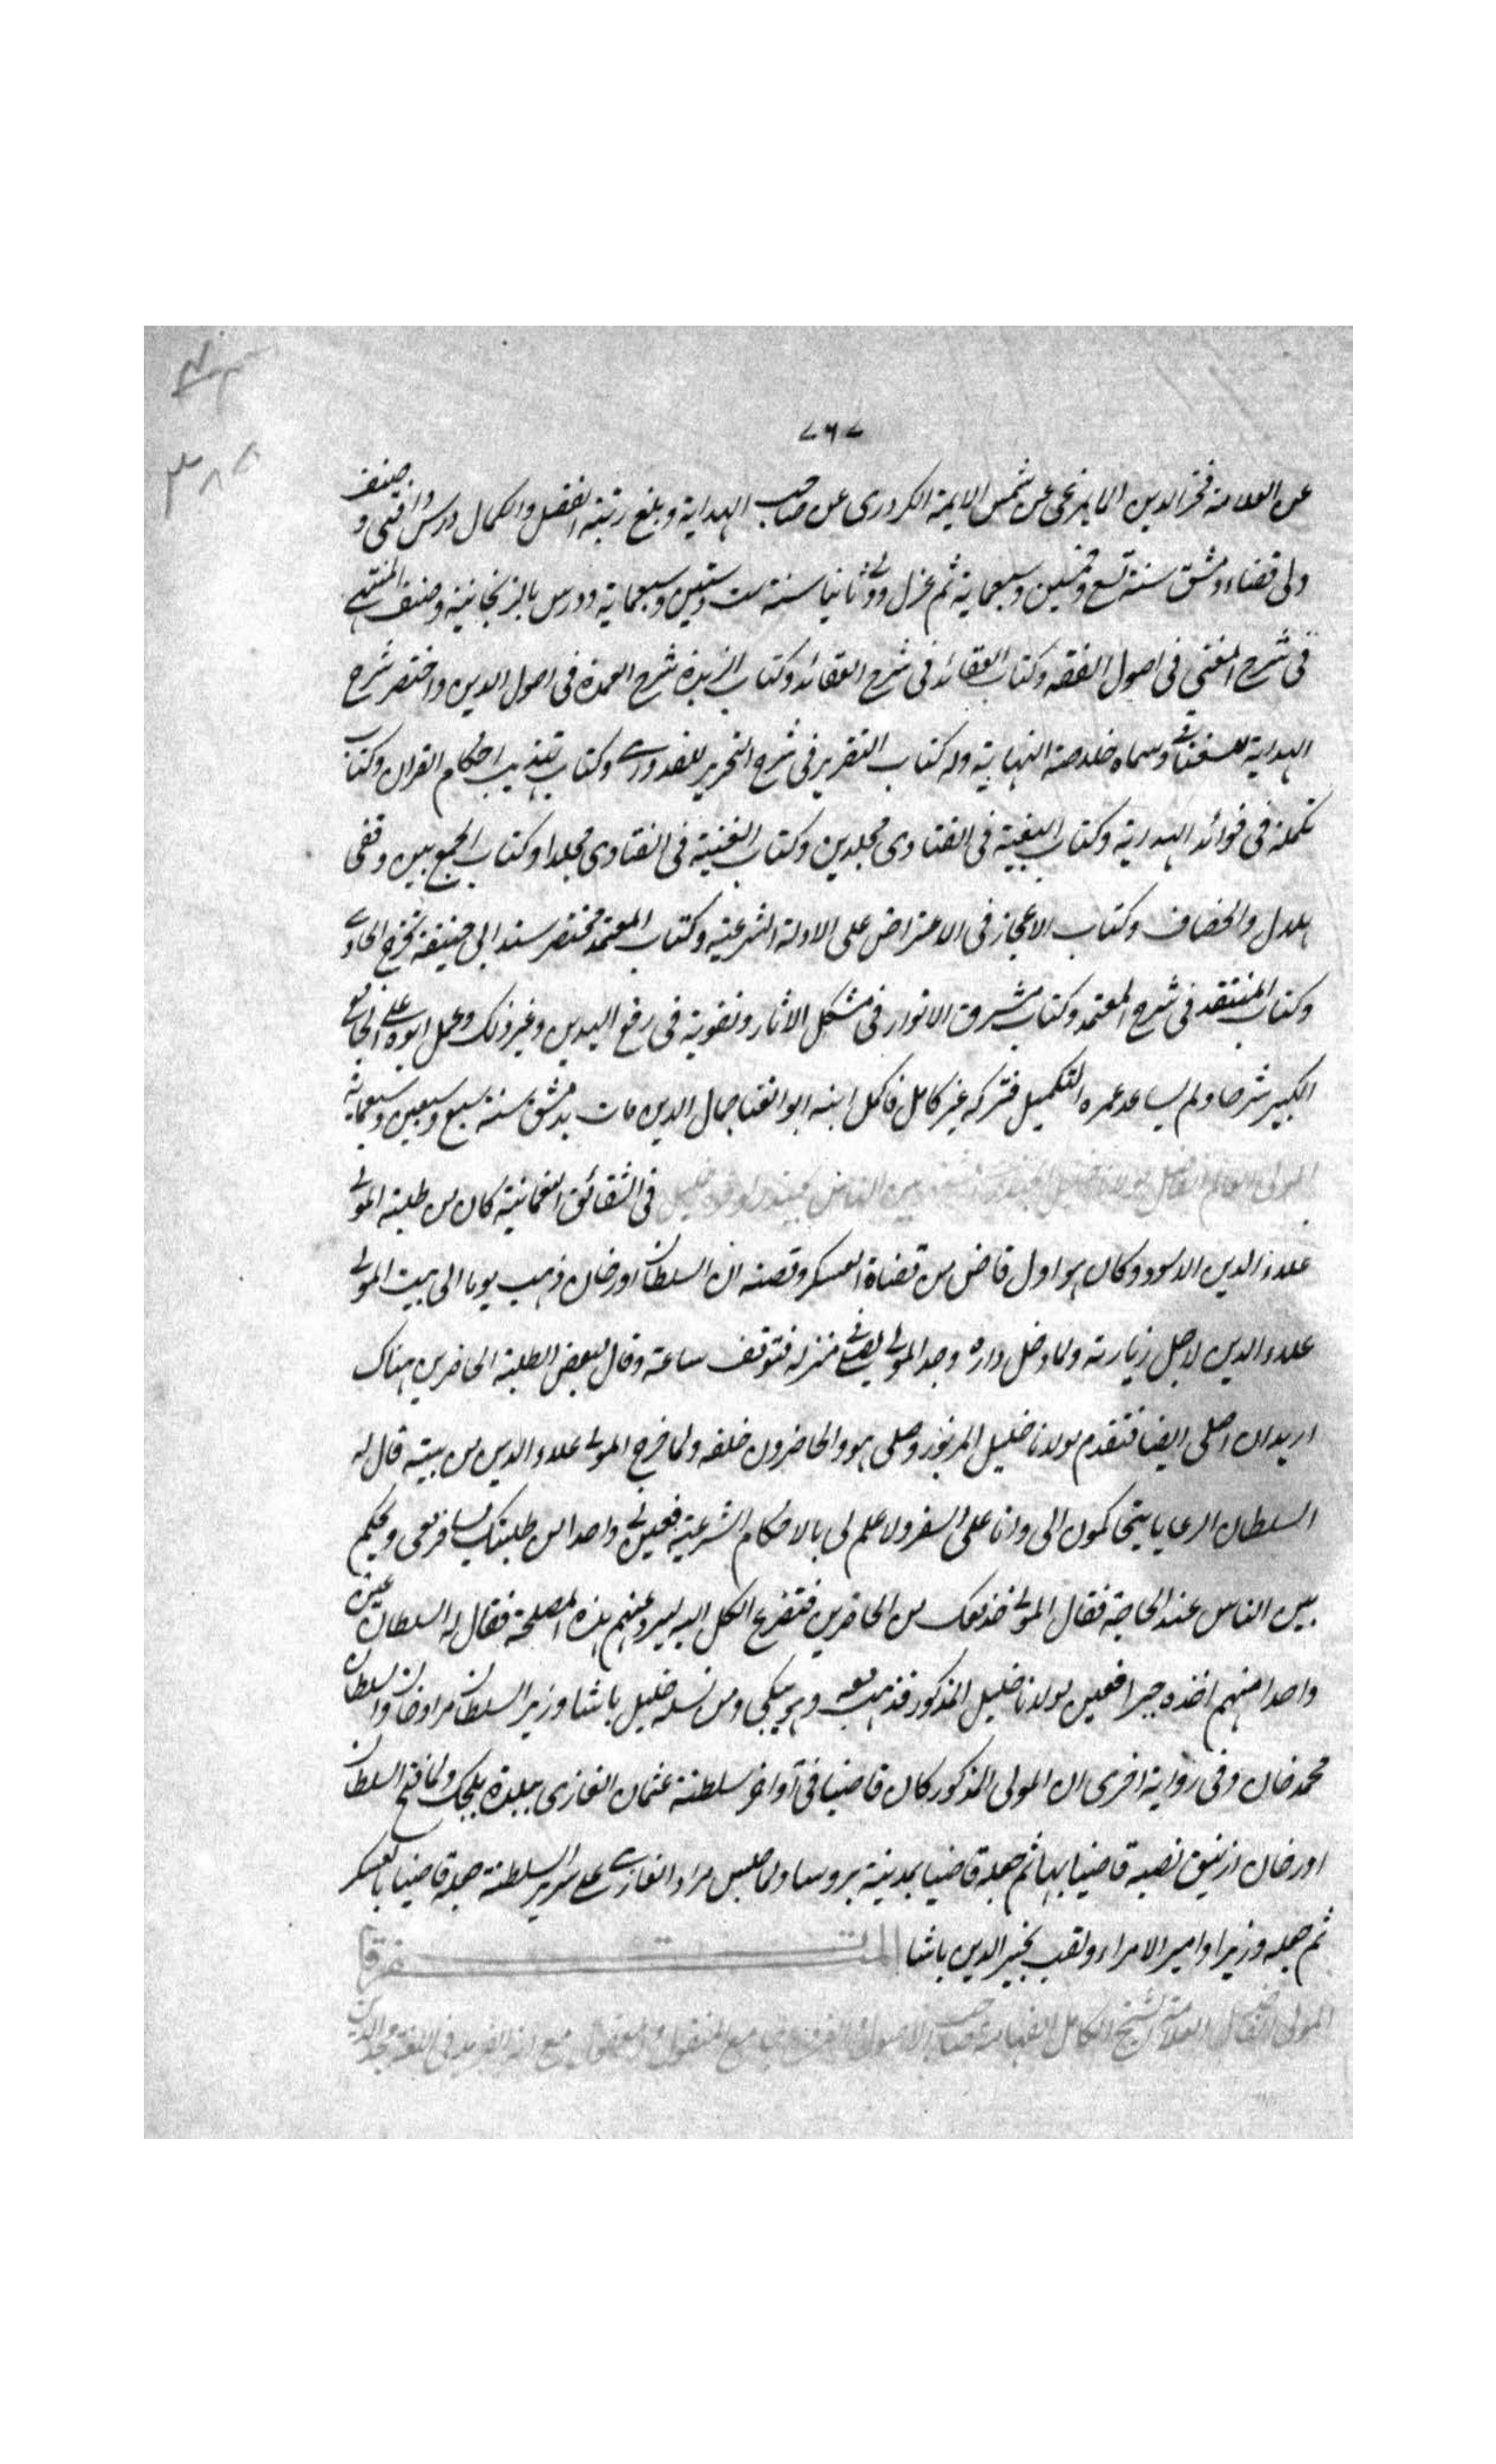 ٧٦٧
عن العلامة فخر الدين المايمرغى عن شمس الايمة الكردرى عن صاحب الهداية وبلغ رتبة الفضل والكمال ودرس وافتى وصنف
ولى قضاء دمشق سنة تسع وخمسين وسبعماية ثم عزل وولى ثانيا سنة ست وستين وسبعماية ودرس بالزنجانية وصنف المنتهى
فى شرح المغنى فى اصول الفقه وكتاب العقائد فى شرح العقائد وكتاب الزبدة شرح العمدة فى اصول الدين واختصر شرح
الهداية للسغناقى وسماه خلاصة النهاية وله كتاب التقرير فى شرح التحرير للقدورى وكتاب تهذيب احكام القران وكتاب
تكملة فى فوائد الهداية وكتاب البغية فى الفتاوى مجلدين وكتاب الغنية فى الفتاوى مجلدا وكتاب الجمع بين وقفى
هلال والخصاف وكتاب الاعجاز فى الاعتراض على الادلة الشرعية وكتاب المعتمد مختصر مسند ابى حنيفة تخرج الحاوى
وكتاب المنتقد فى شرح المعتمد وكتاب مشرق الانوار فى مشكل الاثار وتقوية فى رفع اليدين وغير ذلك وعمل ابوه على الجامع
الكبير شرحا ولم يساعد عمره التكميل فتركه غير كامل فاكمل ابنه ابو الثنا جمال الدين مات بدمشق سنة سبع وسبعين وسبعماية
المولى العالم الفاضل مولانا خليل بين الناس فى الشقائق النعمانية كان من طلبة المولى
علاء الدين الاسود وكان هو اول قاض من قضاة العسكر وقصته ان السلطان اورخان ذهب يوما الى بيت المولى
علاء الدين لاجل زيارته ولما دخل داره وجد المولى يصلى منزله فتوقف ساعة وقال لبعض الطلبة الحاضرين هناك
اريد ان اصلى ايضا فتقدم مولانا خليل المزبور وصلى هو والحاضرون خلفه ولما خرج المولى علاء الدين من بيته قال له
السلطان الرعايا يتحاكمون الى وانا على السفر ولا علم لى بالاحكام الشرعية فعين لى واحدا من طلبتك يسافر معى ويحكم
بين الناس عند الحاجة فقال المولى خذ معك من الحاضرين فتضرع الكل اليه عنهم هذه المصلحة فقال له السلطان عين
واحدا منهم اخذه جبرا فعين مولانا خليل المذكور فذهب معه وهو يبكى ومن نسله خليل باشا وزير السلطان مراد خان والسلطان
محمد خان وفى رواية اخرى ان المولى المذكور كان قاضيا فى آواخر سلطنة عثمان الغازى ببلدة بلجك ولما فتح السلطان
اورخان ازنيق نصبه قاضيا بها ثم جعله قاضيا بمدينة بروسا ولما جلس مراد الغازى على سرير السلطنة جعله قاضيا بالعسكر
ثم جعله وزيرا وامير الامراء ولقب بخير الدين باشا المتفرقا
المولى الفاضل العلامة الشيخ الكامل الفهامة صاحب الاصول والفروع جامع المنقول